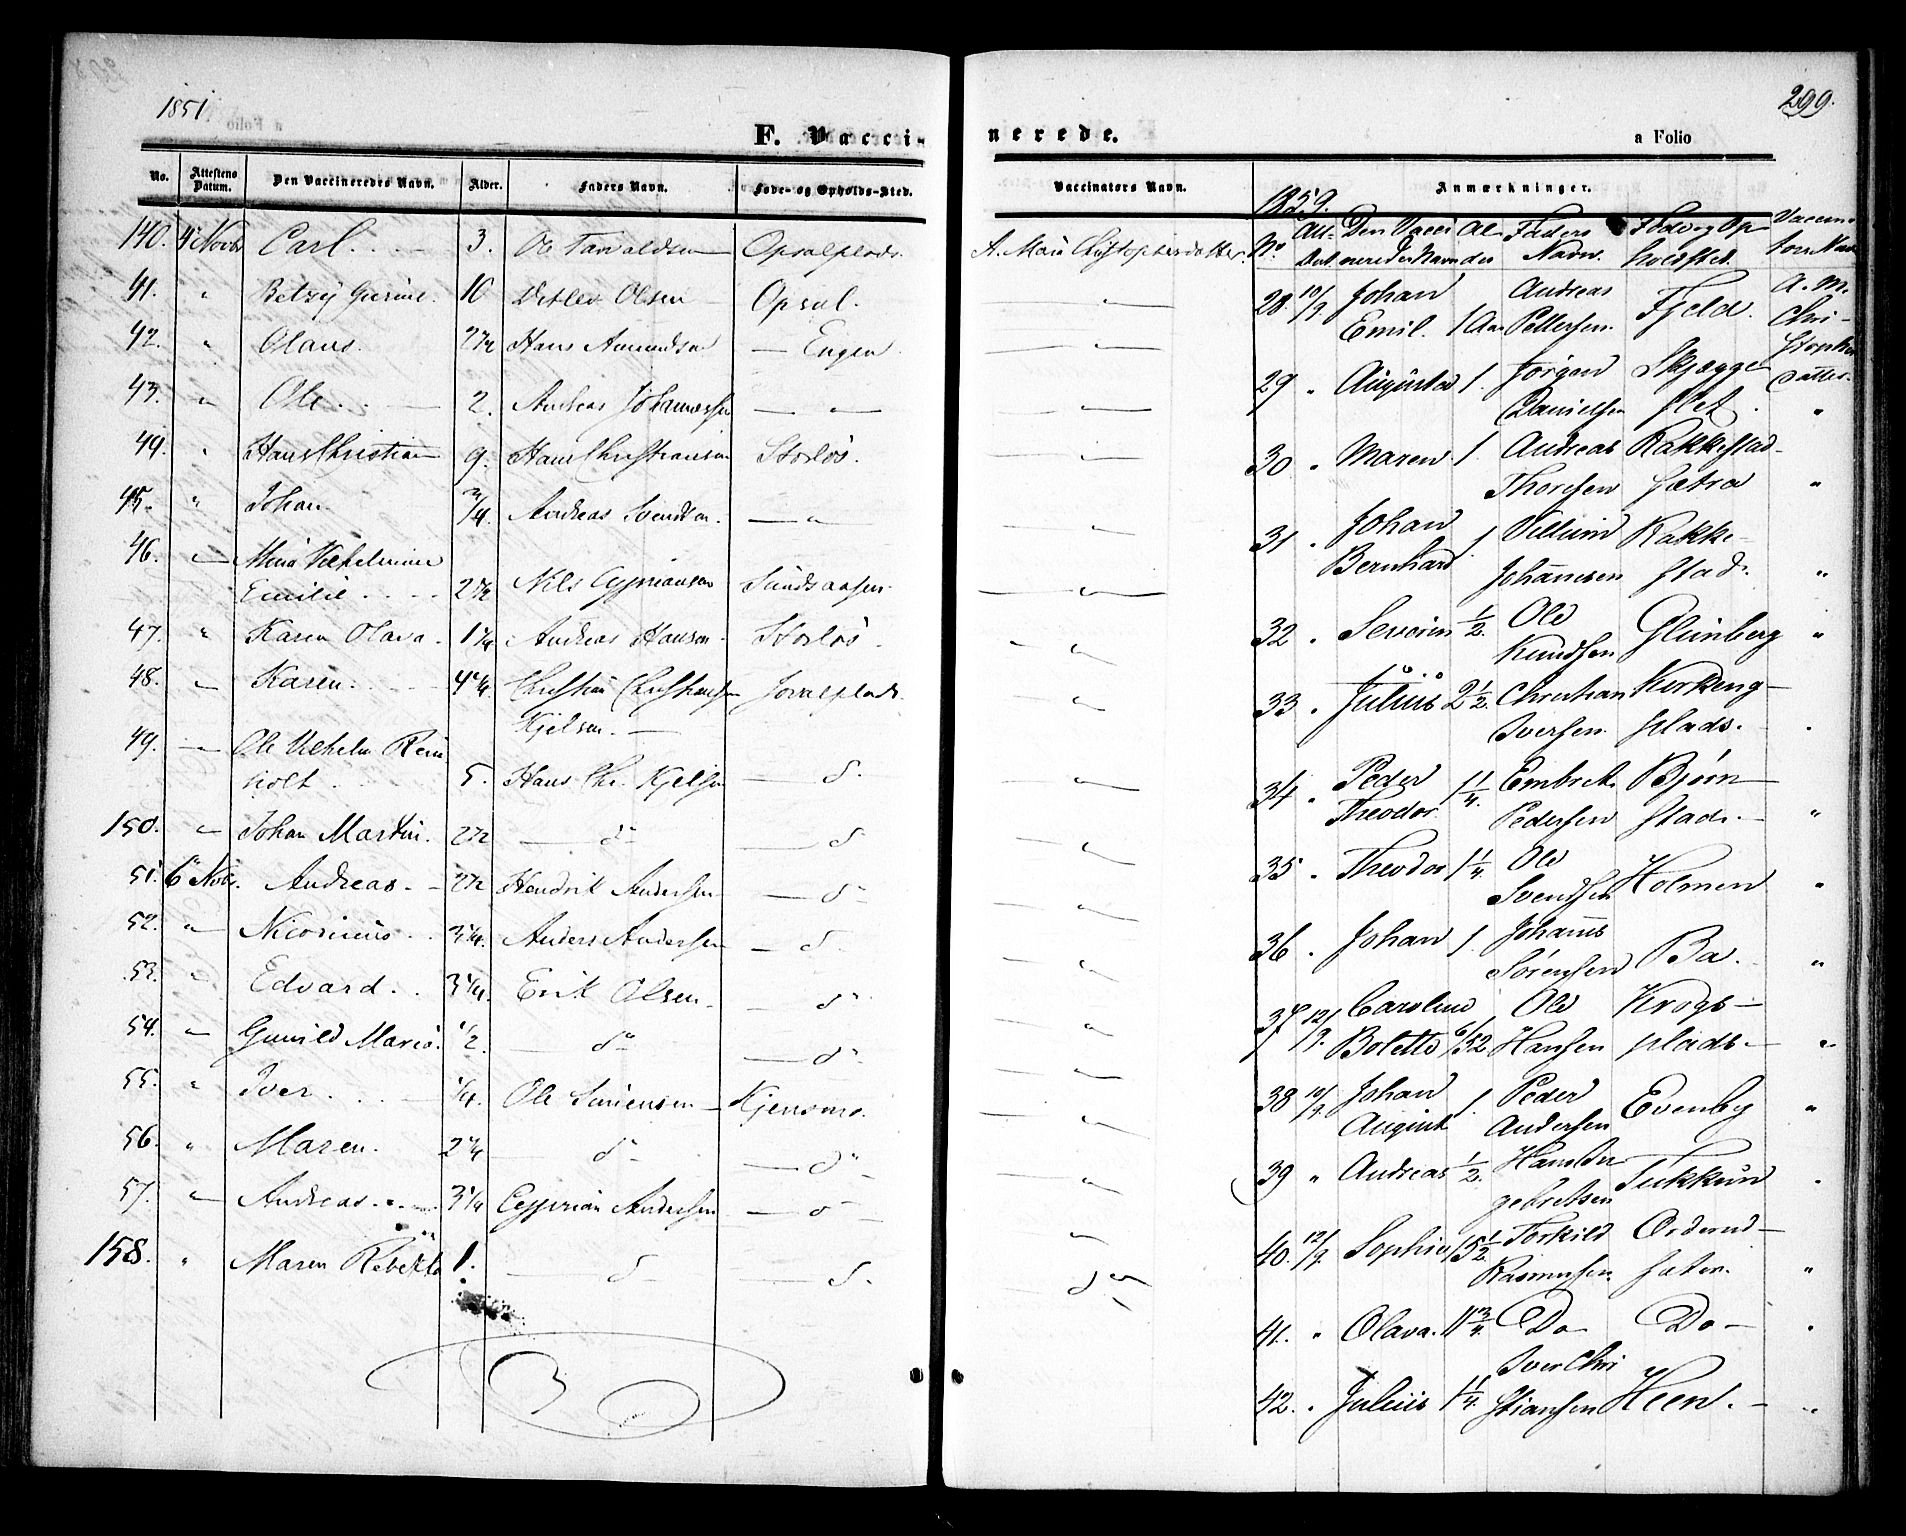 1851
299.
F. Vacci-
nerede.
a Folio
No. Attestens Datum. Den Vaccineredes Navn. Alder. Faders Navn. Føde- og Opholds-Sted. Vaccinators Navn. Anmærkninger.
140. 4 Novbr Carl. 3. Ole Opsalplads. A. Maria Christophersdatter.
41. " Betzy 10 Detlev Olsen Opsal. "
42. " Olaus. 2 1/2 Hans Amundsen — Engen. "
43. " Ole. 2. Andreas Johannessen — " — "
44. " Hans Christian 9. Hans Christiansen Storløs. "
45. " Johan. 3/4. Andreas Svendsen. — " "
46. " Vilhelmine
Emilie. 2 1/2 Nils Cyprianson Sundsaasen. "
47. " Karen Olava. 1 1/4 Andreas Hansen. Storløs. "
48. " Karen. 4 1/4 Christian Christiansen "
Kjelsen.
49. " Ole Vilhelm Rein
holt. 5. Hans Chr. Kjelsen d. "
150. " Johan Martin. 2 1/2 — d° — d "
51. 6 Novbr. Andreas. 2 1/2 Hendrik Andersen — d — "
52. " 3 1/4. Anders Andersen — d "
53. " Edvard. 3 1/4. Erik Olsen. d° "
54. " Gunild Maria. 1/2. — d° — d° "
55. " Iver. 1/4. Ole Sørensen Kjensmo. "
56. " Maren. 2 1/4 — d° — d° "
57. " Andreas. 3 1/4 Cyprian Andersen — d — "
158. " Maren Rebekka 1. — d — d. d "
1859.
No Att. Dat. Den Vacci nerede Navn Al der Faders Navn. Føde og Op holdsted. Vaccina tors Navn
28. 10/9. Johan Emil. 1 Aar Andreas Pettersen. Fjeld. A. M. Chri- stophers datter.
29 " Augusta 1. Jørgen Danielsen Skjægge flet. "
30 " Maren 1. Andreas Thoresen Rakkestad- sætra "
31 . Johan Bernhard 1 Villum Johannesen Rakke- stad. "
32 . Severin 1/2. Ole Knudsen Glimberg "
33 . Julius 2 1/2. Christian Iversen. Kirkeng- plads. .
34 " Peder Theodor. 1 1/4. Embret Pedersen Bjørn- stad. "
35 . Theodor 1 1/4. Ole Svendsen Holmen "
36 . Johan 1. Johannes Sørensen Ba. "
37 12/9. Caroline Bolette 6/52 Ole Hansen Krogs- plads "
38 10/9. Johan August 1. Peder Andersen Evenby "
39 " Andreas 1/2. Hans In gebretsen Tukkun .
40. 12/9. Sophie 15 1/2 Torkild Rasmussen. Orderud- sæter. "
41. " Olava. 11 3/4. Do Do .
42. . Julius 1 1/4. Iver Chri stiansen Heen. "